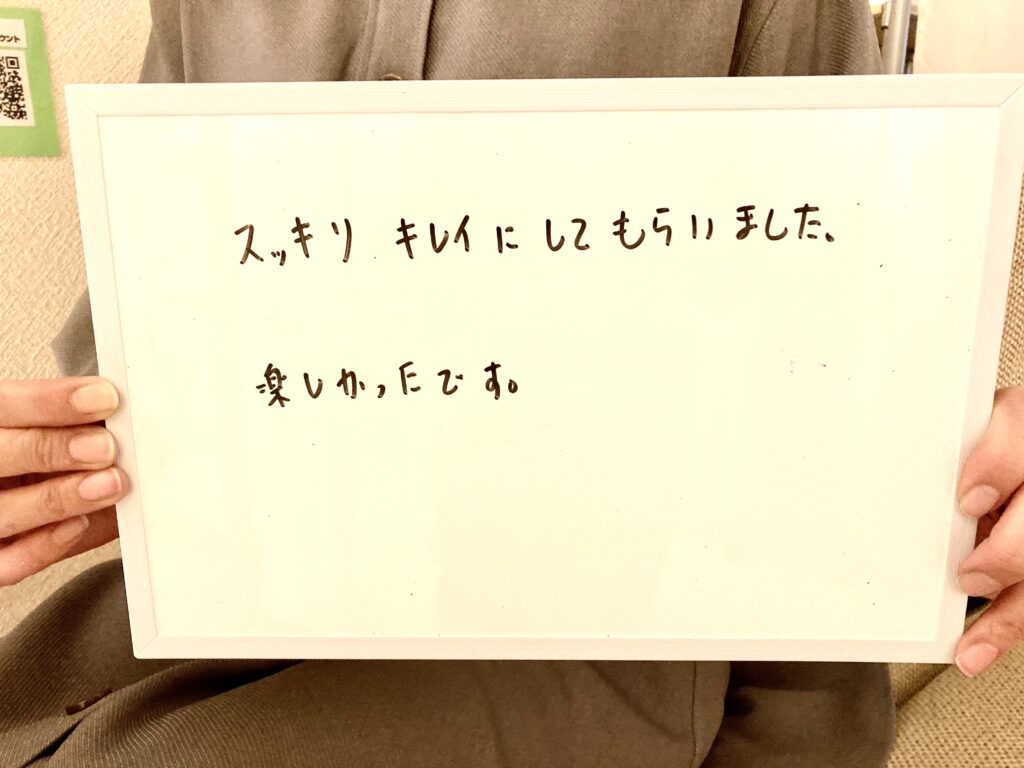 ウント
スッキリ キレイに してもらいました。
楽しかったです。